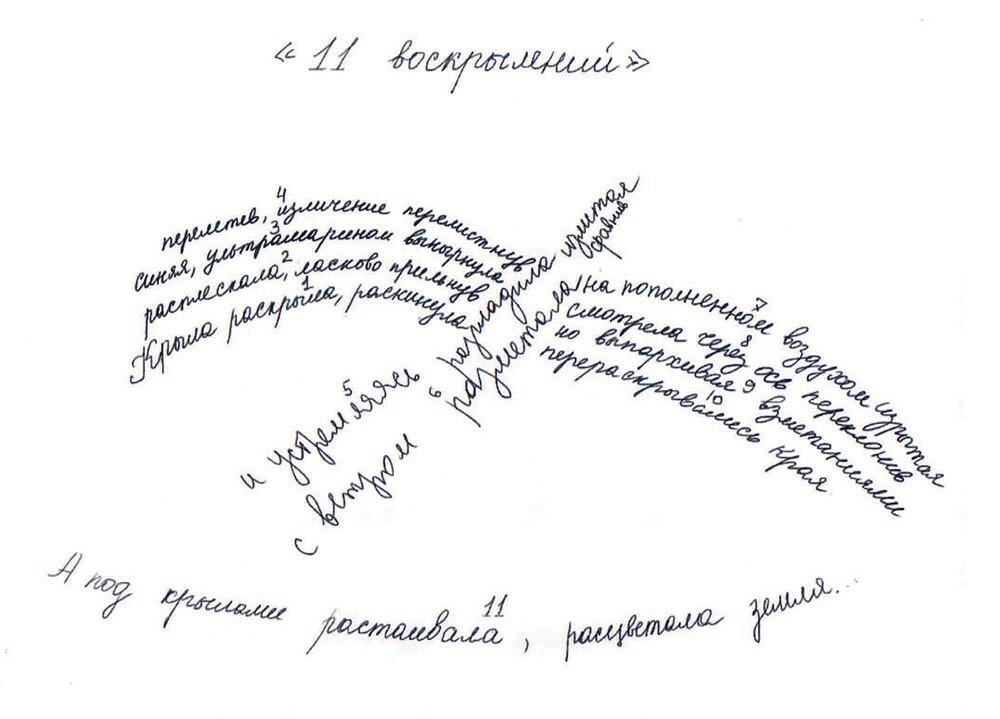 « 11 воскрылений »
перелетев, 4 изличение перелистнув
синяя, 3 ультрамарином вынырнула
расплескала, 2 ласково прильнув
Крыла раскрыла, 1 раскинула
и устремляясь 5 разгладила излитая
с ветром 6 разметала сравнив
на пополненном 7 воздухом изрытая
смотрела через 8 ось переклонив
но выпархивая 9 взметаниями
перераскрывались 10 края
А под крылами растаивала 11, расцветала земля...